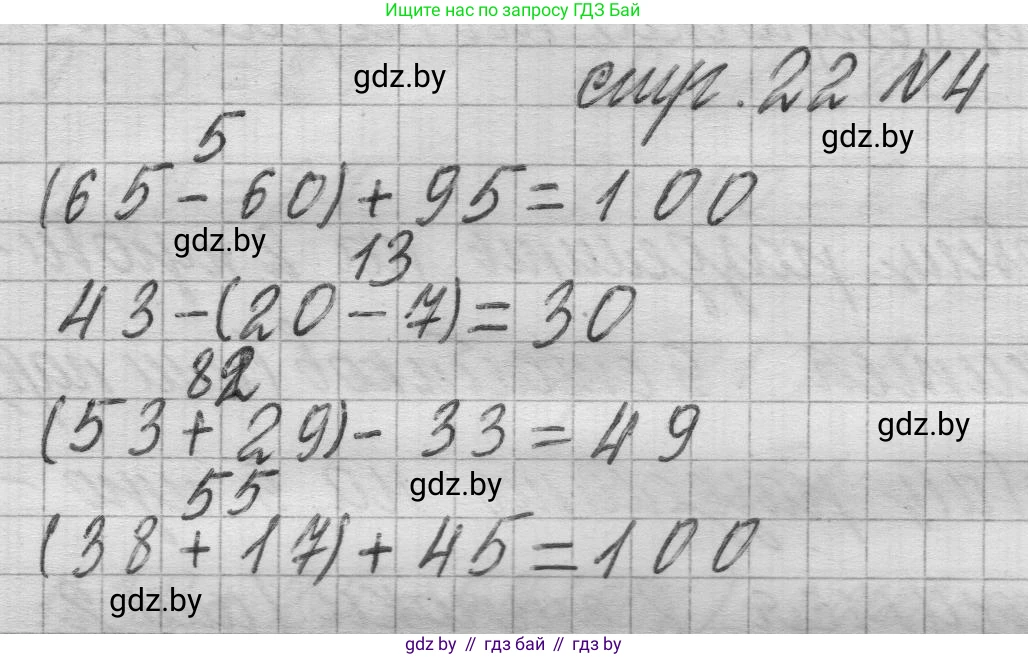 Ищите нас по запросу ГДЗ Бай
gdz.by
стр. 22 N 4
gdz.by
5
(65 - 60) + 95 = 100
gdz.by
13
43 - (20 - 7) = 30
82
(53 + 29) - 33 = 49
gdz.by
55
gdz.by
(38 + 17) + 45 = 100
gdz.by
gdz by // гдз бай // гдз by